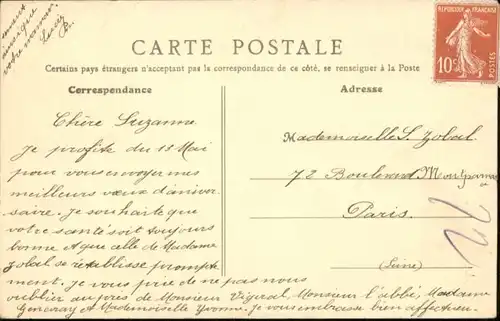 CARTE POSTALE
Certains pays étrangers n'acceptant pas la correspondance de ce côté, se renseigner à la Poste
Correspondance
Chère Suzanne
Je profite du 13 Mai
pour vous envoyer mes
meilleurs vœux d'anniver
saire. Je souhaite que
votre santé soit toujours
bonne et que celle de Madame
Zobal se rétablisse prompte
ment. Je vous prie de ne pas nous
oublier auprès de Monsieur Vigural, Monsieur l'abbé, Madame
et Mademoiselle Yvonne. Je vous embrasse bien affectieu-
sement
ainsi que
votre maman.
Adresse
Mademoiselle S. Zobal
72 Boulevard Montparnasse
Paris.
(Seine)
REPUBLIQUE FRANÇAISE
10c
POSTES